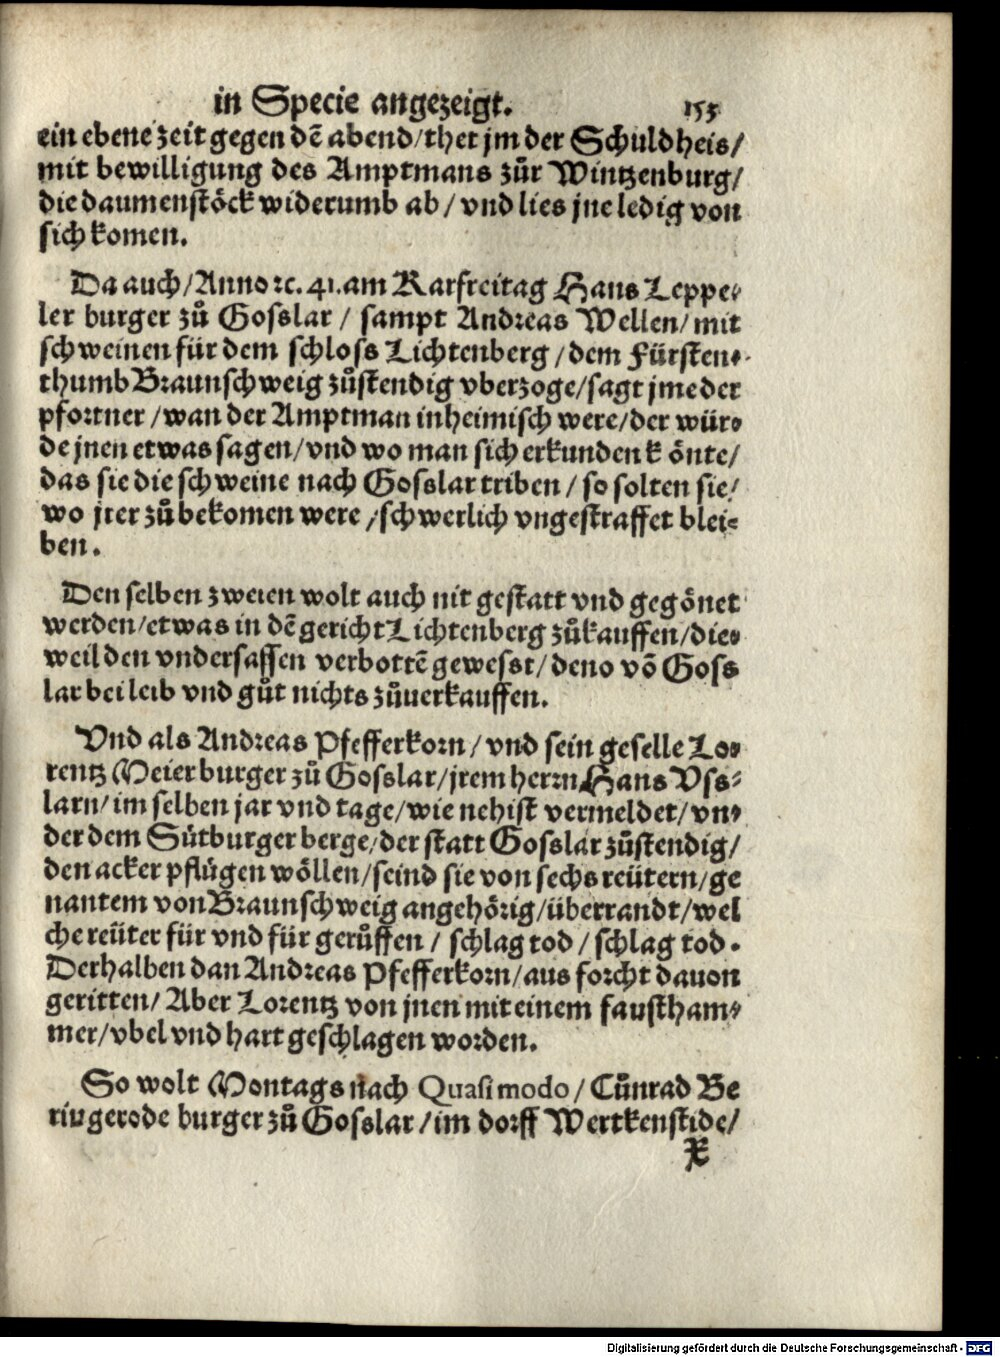 in Specie angezeigt. 153
ein ebene zeit gegen dē abend/thet jm der Schuldheis/
mit bewilligung des Amptmans zůr Wintzenburg/
die daumenstöck widerumb ab/ vnd lies jne ledig von
sich komen.
Da auch/Anno ꝛc. 41. am Karfreitag Hans Leppe⸗
ler burger zů Gosslar / sampt Andreas Wellen/ mit
schweinen für dem schloss Lichtenberg /dem Fürsten⸗
thumb Braunschweig zůstendig vberzoge/sagt jme der
pfortner /wan der Amptman inheimisch were/der wür⸗
de jnen etwas sagen/vnd wo man sich erkunden könte/
das sie die schweine nach Gosslar triben / so solten sie/
wo jrer zů bekomen were /schwerlich vngestraffet blei⸗
ben.
Den selben zweien wolt auch nit gestatt vnd gegönet
werden/etwas in dē gericht Lichtenberg zůkauffen/die⸗
weil den vndersassen verbottē gewesst/ deno vō Goss
lar bei leib vnd gůt nichts zůuerkauffen.
Vnd als Andreas Pfefferkorn/ vnd sein geselle Lo⸗
rentz Meier burger zů Gosslar/jrem herrn Hans Vss⸗
larn/ im selben jar vnd tage/wie nehist vermeldet/ vn⸗
der dem Sůtburger berge/der statt Gosslar zůstendig/
den acker pflůgen wöllen/seind sie von sechs reütern/ge
nantem von Braunschweig angehörig/überrandt/wel
che reüter für vnd für gerůffen / schlag tod / schlag tod.
Derhalben dan Andreas Pfefferkorn/aus forcht dauon
geritten/ Aber Lorentz von jnen mit einem faustham⸗
mer/vbel vnd hart geschlagen worden.
So wolt Montags nach Quasi modo / Cůnrad Be
ringerode burger zů Gosslar /im dorff Wertkenstide/
X
Digitalisierung gefördert durch die Deutsche Forschungsgemeinschaft - DFG